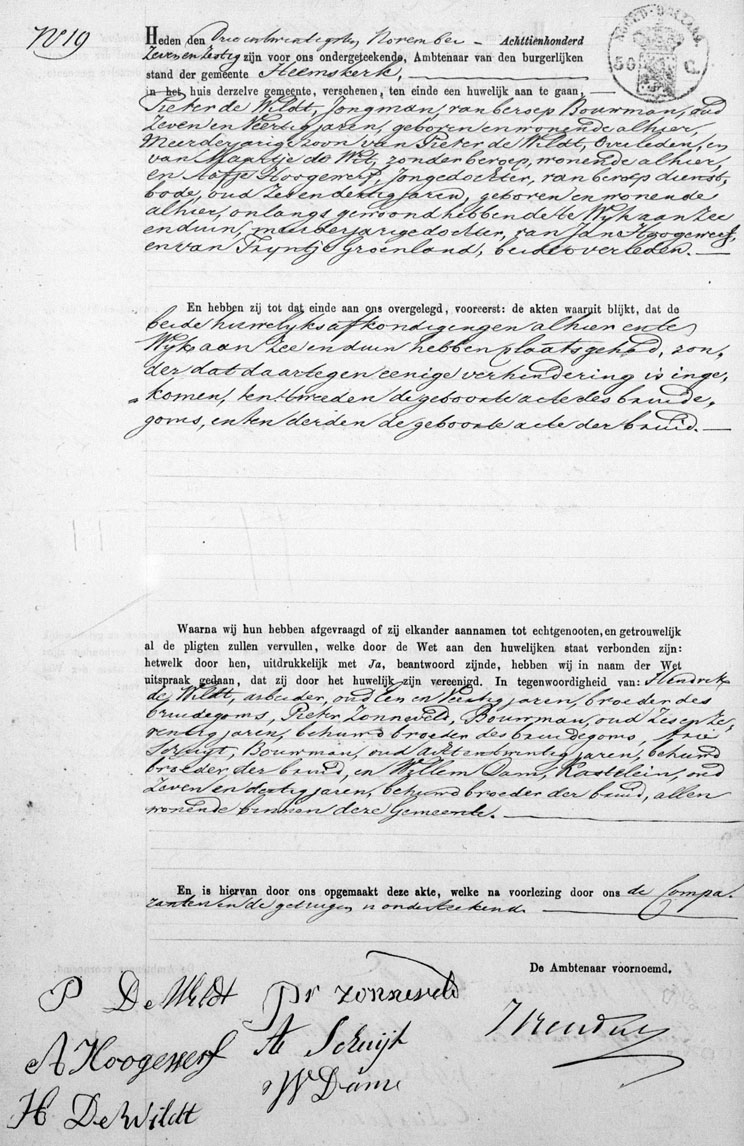 No 19
Heden den Drie entwintigsten November – Achttienhonderd
Zeven en Zestig zijn voor ons ondergeteekende, Ambtenaar van den burgerlijken
stand der gemeente Heemskerk,
in het huis derzelve gemeente, verschenen, ten einde een huwelijk aan te gaan,
Pieter de Wildt, Jongman, van beroep Bouwman, oud
Zeven en Veertig jaren, geboren en wonende alhier,
Meerderjarige zoon van Pieter de Wildt, Overleden, en
van Maartje de Wit, zonder beroep, wonende alhier,
en Aafje Hoogewerf, Jongedochter, van beroep dienst,
bode, oud Zeven dertig jaren, geboren en wonende
alhier, onlangs gewoond hebbende te Wijk aan Zee
en duin, meerderjarige dochter, van Jan Hoogewerf,
en van Tryntje Groenland, beide overleden. —
En hebben zij tot dat einde aan ons overgelegd, vooreerst: de akten waaruit blijkt, dat de
beide huwelyks afkondigingen alhier en te
Wijk aan Zee en duin hebben plaats gehad, zon,
der dat daartegen eenige verhindering is inge,
komen, ten tweeden de geboorte acte des bruide,
goms, en ten derden de geboorte acte der bruid. —
Waarna wij hun hebben afgevraagd of zij elkander aannamen tot echtgenooten, en getrouwelijk
al de pligten zullen vervullen, welke door de Wet aan den huwelijken staat verbonden zijn:
hetwelk door hen, uitdrukkelijk met Ja, beantwoord zijnde, hebben wij in naam der Wet
uitspraak gedaan, dat zij door het huwelijk zijn vereenigd. In tegenwoordigheid van: Hendrik
de Wildt, arbeider, oud Een en Veertig jaren, broeder des
bruidegoms, Pieter Zonneveld, Bouwman, oud Zes en Ze,
ventig jaren, behuwd broeder des bruidegoms, Arie
Schuijt, Bouwman, oud acht en twintig jaren, behuwd
broeder der bruid, en Willem Dam, Kastelein, oud
Zeven en dertig jaren, behuwd broeder der bruid, allen
wonende binnen deze Gemeente. —
En is hiervan door ons opgemaakt deze akte, welke na voorlezing door ons de Compa,
ranten en de getuigen is onderteekend
De Ambtenaar voornoemd.
P De Wildt
Pr Zonneveld
A Hoogewerf
A Schuijt
W Dam
H De Wildt